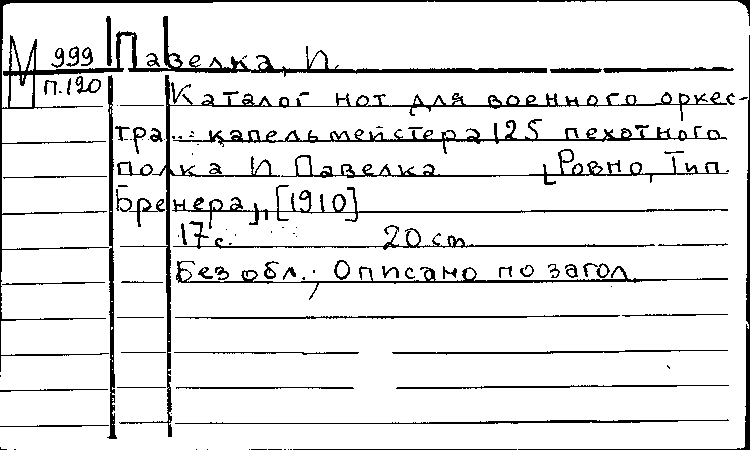 М 999 Павелка, И.
П.120 Каталог нот для военного оркес-
тра... капельмейстера 125 пехотного
полка И Павелка [Ровно, Тип.
Бренера], [1910]
17 с. 20 cm.
Без обл.; Описано по загол.